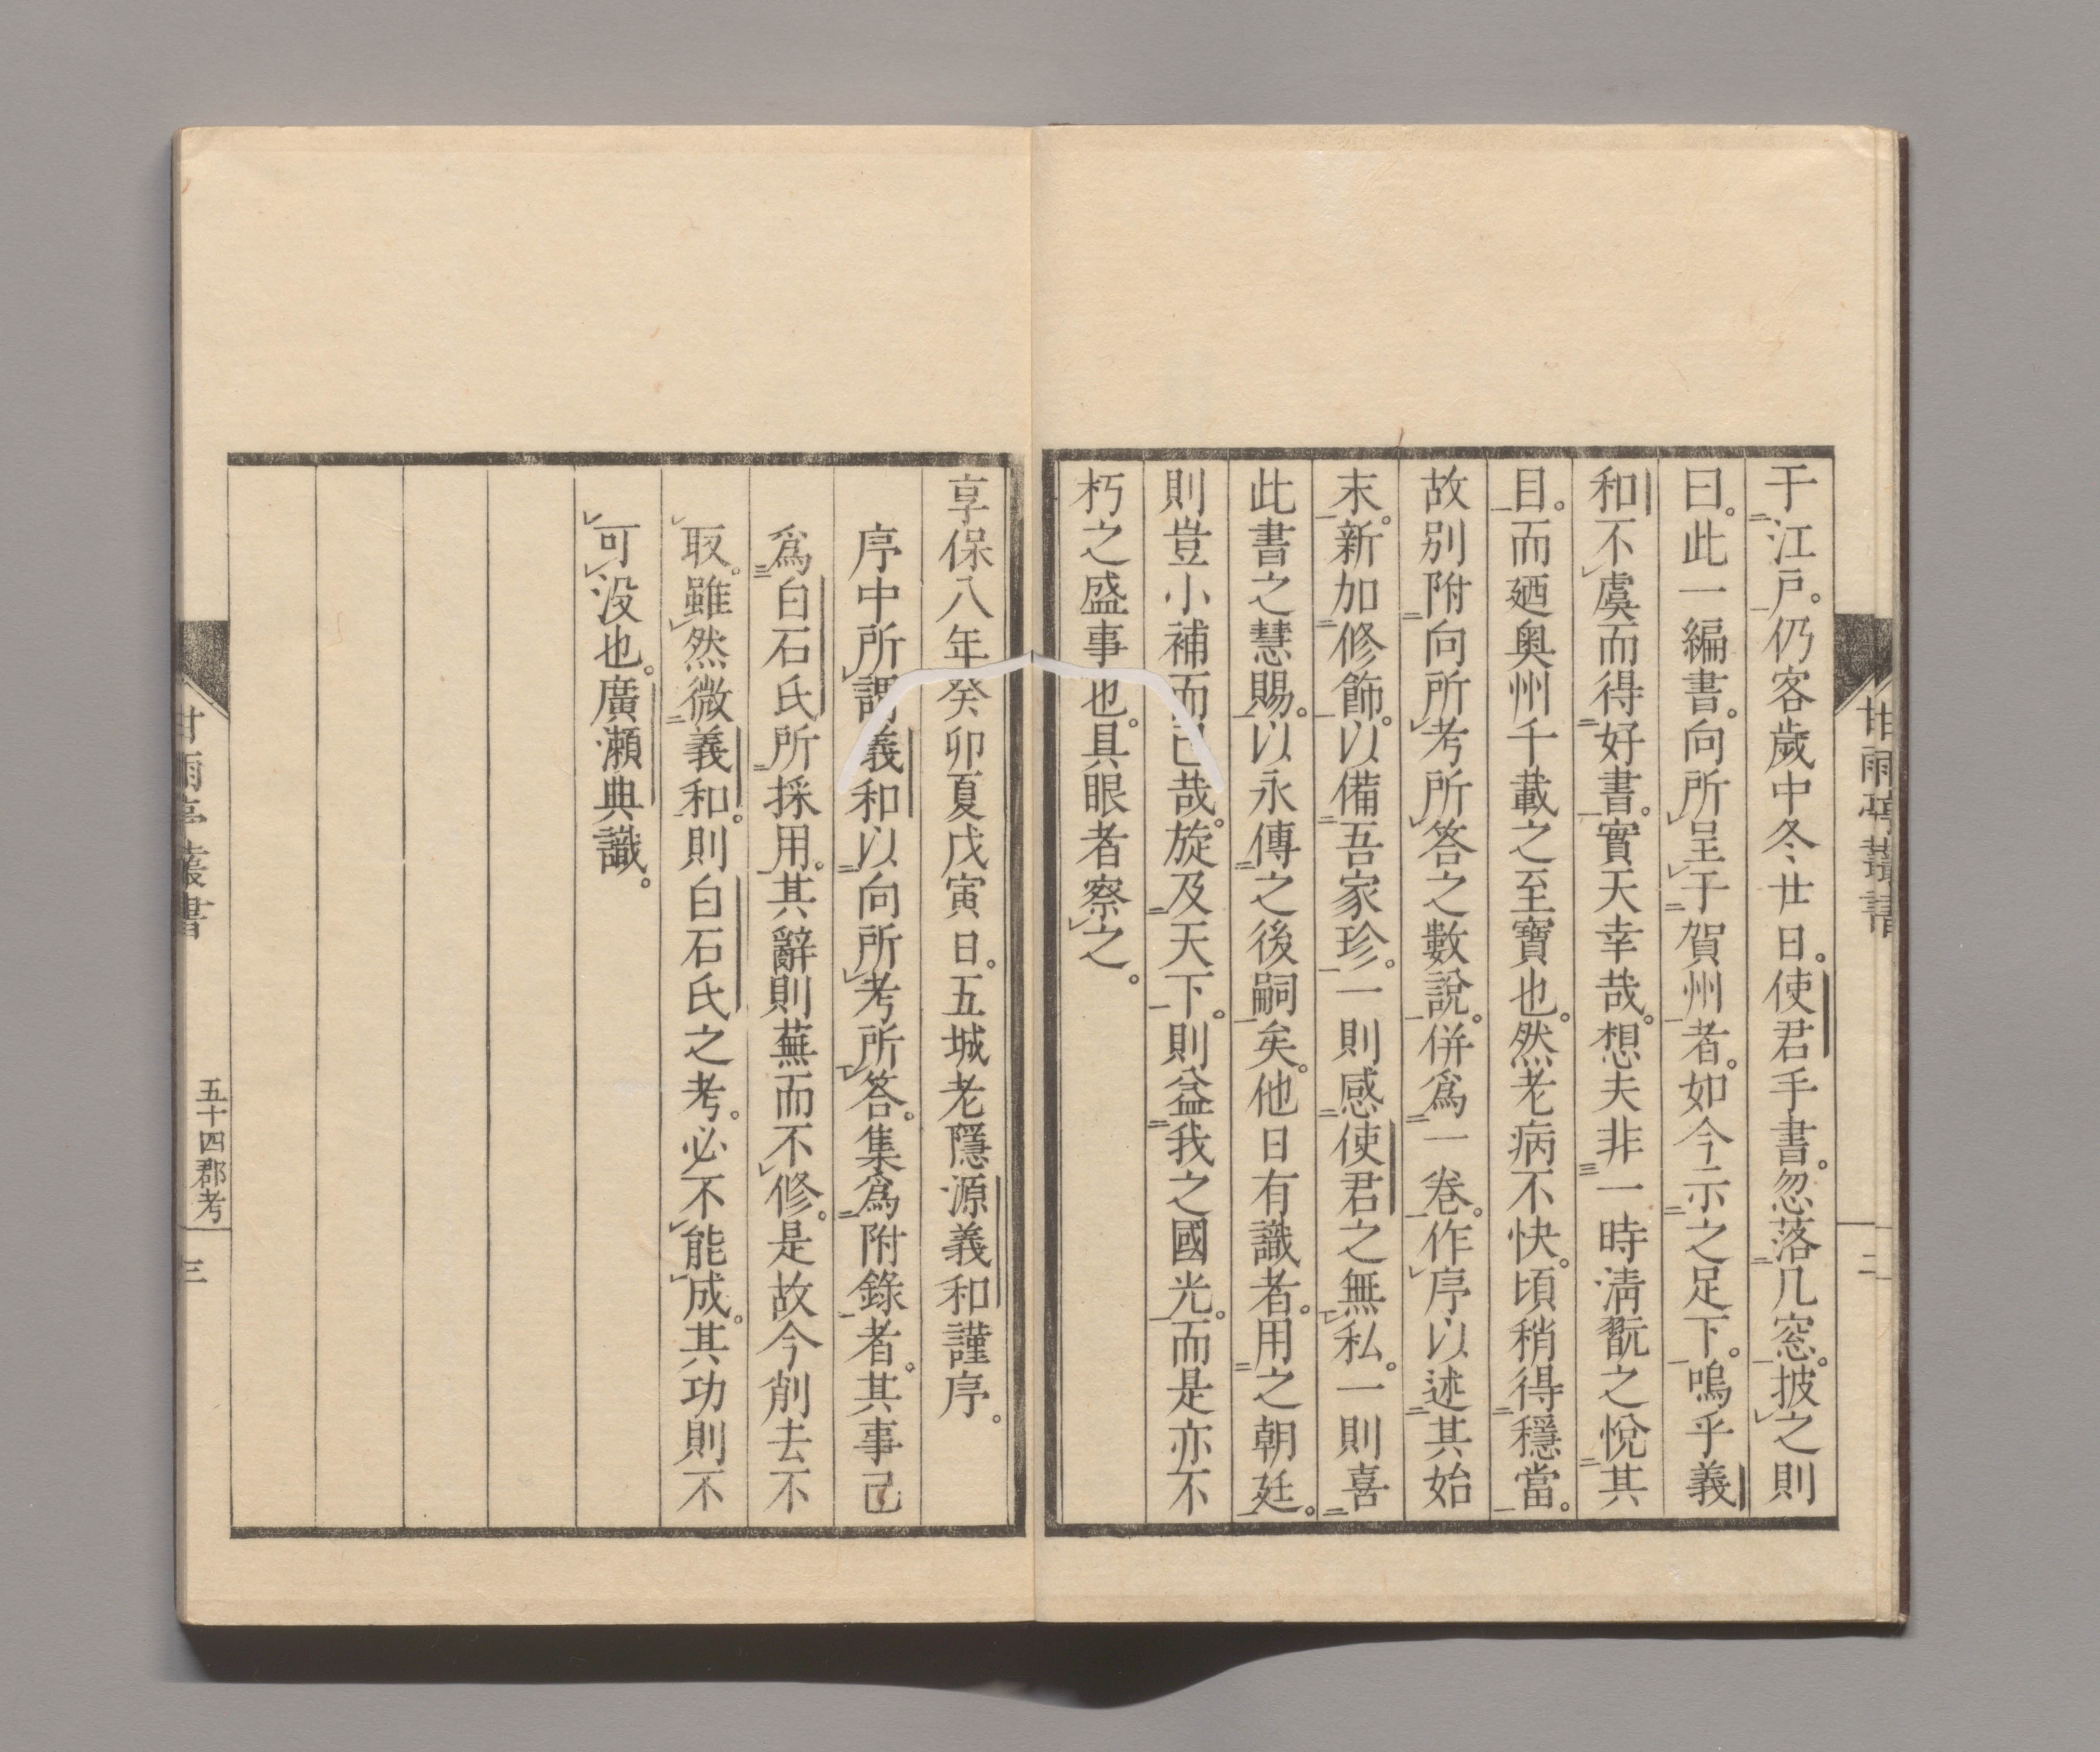 甘雨亭叢書
二
于江戸。仍客歲中冬廿日。使君手書。忽落几窓。披之則
曰。此一編書。向所呈于賀州者。如今示之足下。嗚乎義
和不虞而得好書。實天幸哉。想夫非一時淸翫之悅其
目。而廼奥州千載之至寶也。然老病不快。頃稍得穩當。
故別附向所考所答之數說。併爲一卷。作序以述其始
末。新加修飾。以備吾家珍。一則感使君之無私。一則喜
此書之慧賜。以永傳之後嗣矣。他日有識者。用之朝廷。
則豈小補而已哉。旋及天下。則益我之國光。而是亦不
朽之盛事也。具眼者察之。
享保八年癸卯夏戊寅日。五城老隱源義和謹序。
序中所謂義和以向所考所答。集爲附錄者。其事已
爲白石氏所採用。其辭則蕪而不修。是故今削去不
取。雖然微義和。則白石氏之考。必不能成。其功則不
可没也。廣瀬典識。
甘雨亭叢書
五十四郡考
三